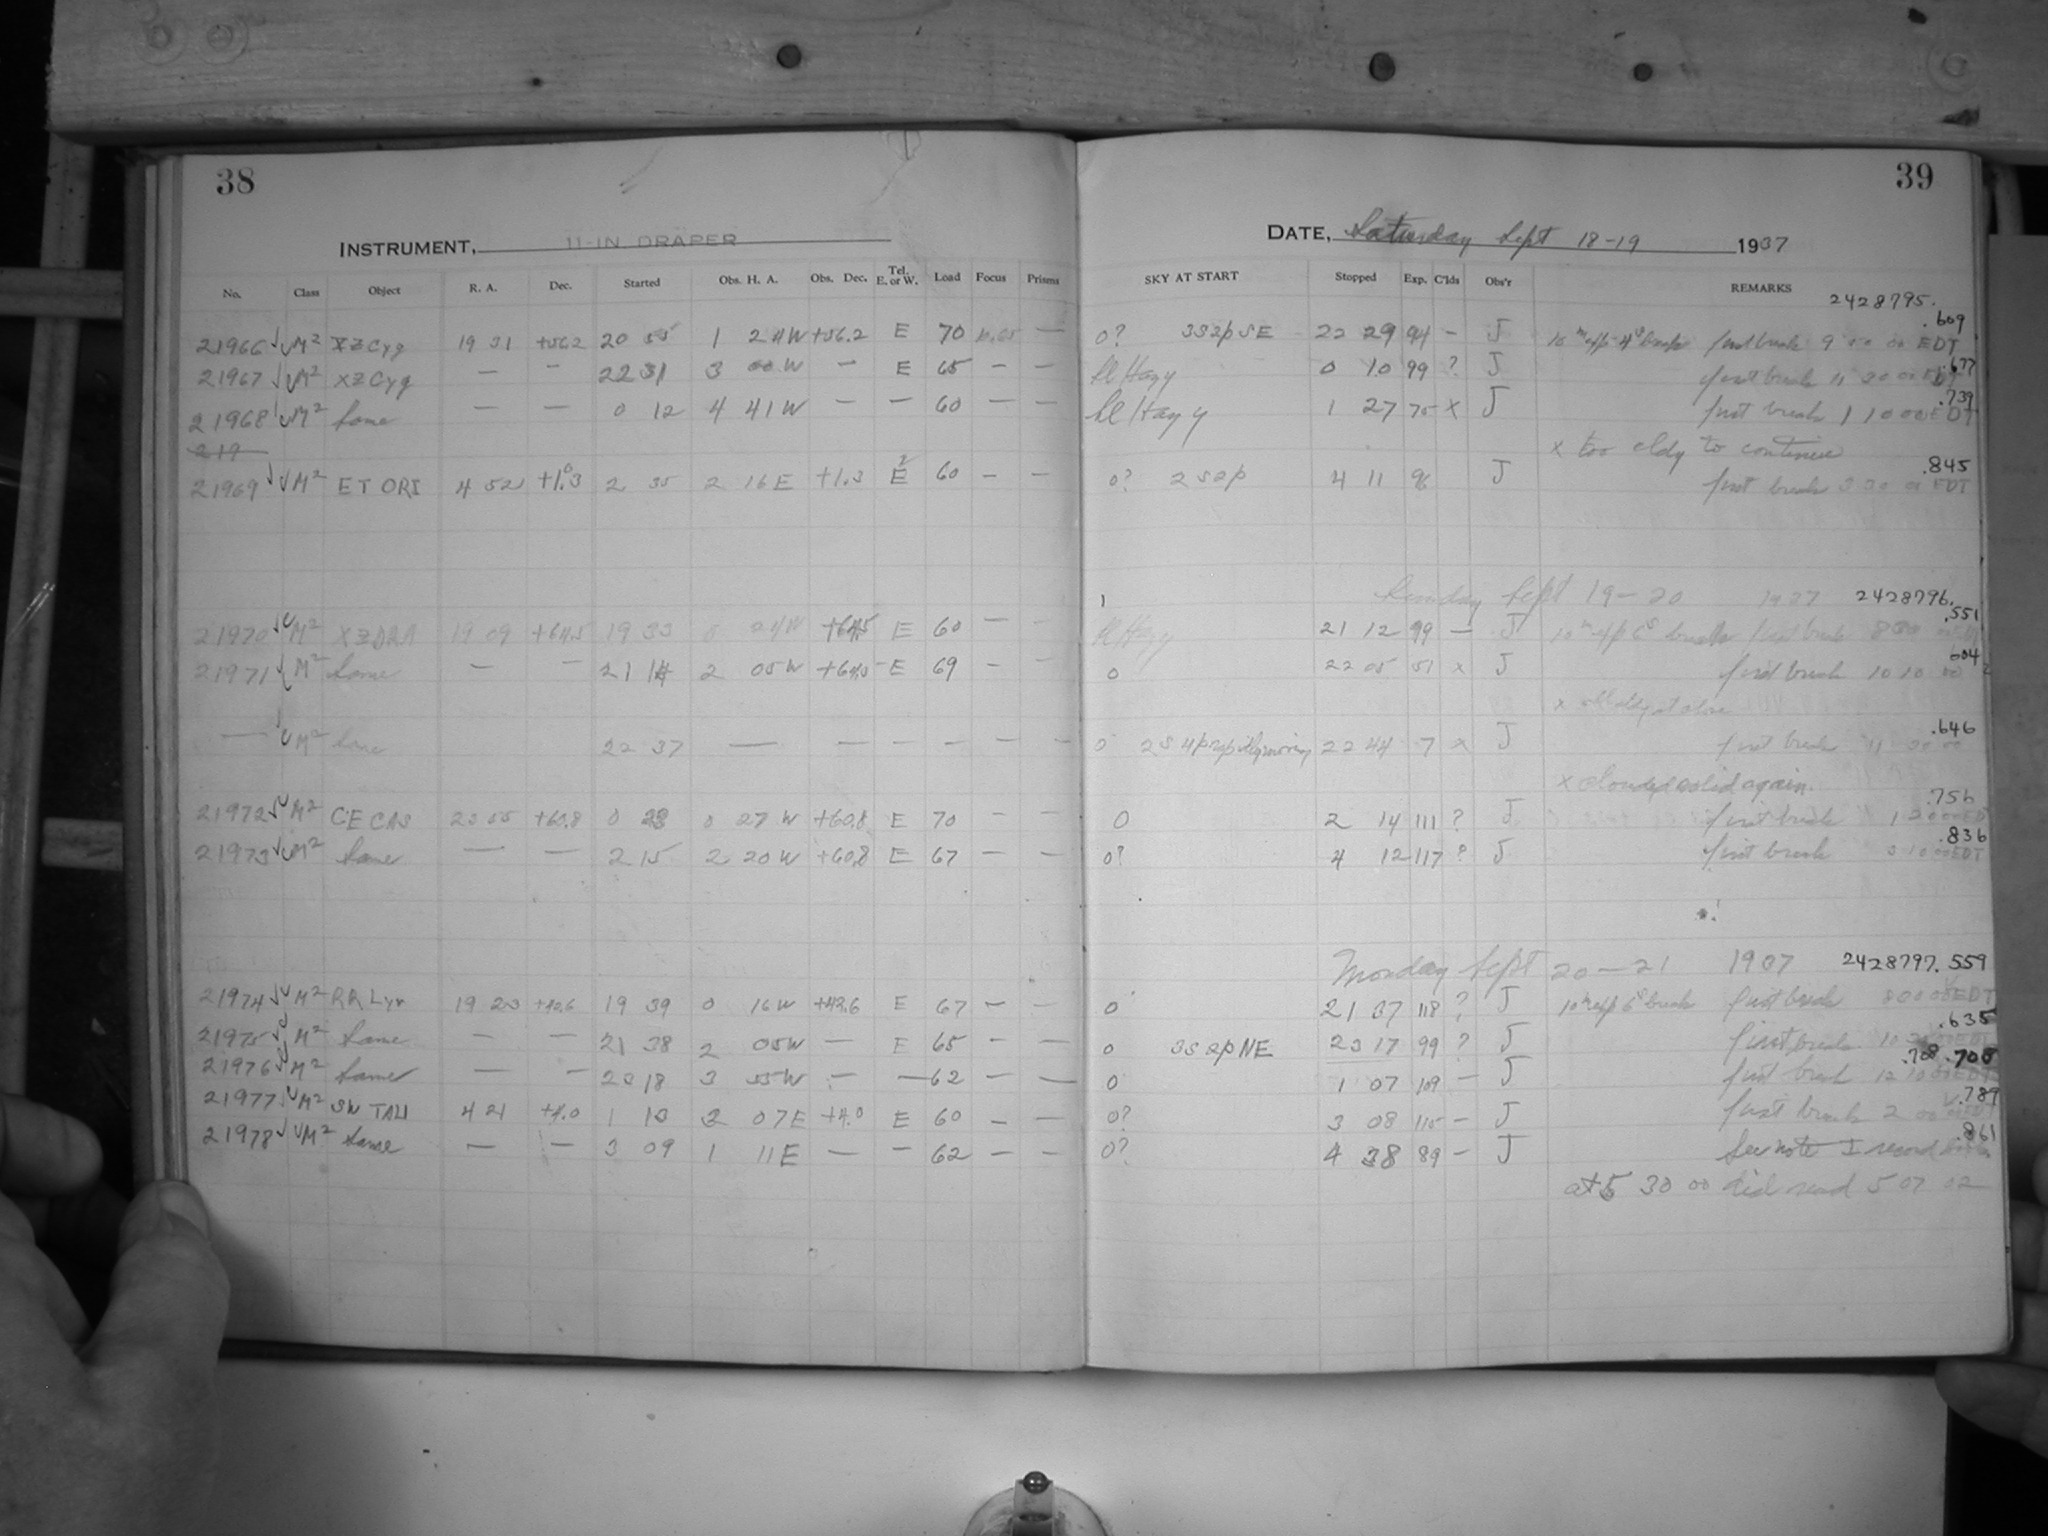 38
INSTRUMENT, 11-IN DRAPER
No. Class Object R. A. Dec. Started Obs. H. A. Obs. Dec. Tel. E. or W. Load Focus Prisms
21966 M2 XZ Cyg 19 31 +56.2 20 55 1 24W +56.2 E 70 —
21967 M2 XZ Cyg — — 22 31 3 00 W — E 65 — —
21968 M2 Same — — 0 12 4 41W — — 60 — —
219
21969 M2 ET ORI 4 52 +1.3 2 35 2 16E +1.3 E 60 — —
21970 M2 XZ DRA 19 09 +64.5 19 33 0 24W +64.5 E 60 — —
21971 M2 Same — — 21 14 2 05W +64.5 E 69 — —
— M2 Same 22 37 — — — — — —
21972 M2 CE CAS 23 55 +60.8 0 23 0 27 W +60.8 E 70 — —
21973 M2 Same — — 2 15 2 20W +60.8 E 67 — —
21974 M2 RR Lyr 19 23 +42.6 19 39 0 16W +42.6 E 67 — —
21975 M2 Same — — 21 38 2 05W — E 65 — —
21976 M2 Same — — 23 18 3 55W — — 62 — —
21977 M2 SW TAU 4 21 +4.0 1 13 3 07E +4.0 E 60 — —
21978 M2 Same — — 3 09 1 11E — — 62 — —
39
DATE, Saturday Sept 18-19 1937
SKY AT START Stopped Exp. C'lds Obs'r REMARKS
2428795.
.609
0? 3S2p SE 22 29 94 — J 10m exp 4s break first break 9 00 00 EDT
.677
Sl Hazy 0 10 99 ? J first break 11 20 00 EDT
.739
Sl Hazy 1 27 75 x J first break 1 10 00 EDT
x too cldy to continue
.845
0? 2S2p 4 11 96 J first break 3 30 00 EDT
1 Sunday Sept 19-20 1937 2428796.
.551
Sl Hazy 21 12 99 — J 10m exp 6s break first break 8 30
.604
0 22 05 51 x J first break 10 10 00
.646
0 2S 4p rapidly moving 22 44 7 x J first break 11 20 00
x clouded solid again.
.756
0 2 14 111 ? J first break 1 20 00 EDT
.836
0? 4 12 117 ? J first break 3 10 00 EDT
Monday Sept 20-21 1937 2428797.559
0 21 37 118 ? J 10m exp 6s break first break 8 00 00 EDT
.635
0 3S 2p NE 23 17 99 ? J first break 10
.708 .708
0 1 07 109 — J first break 12 10 00 EDT
.789
0? 3 08 115 — J first break 2 00
.861
0? 4 38 89 — J See note I record
at 5 30 00 did read 5 07 02